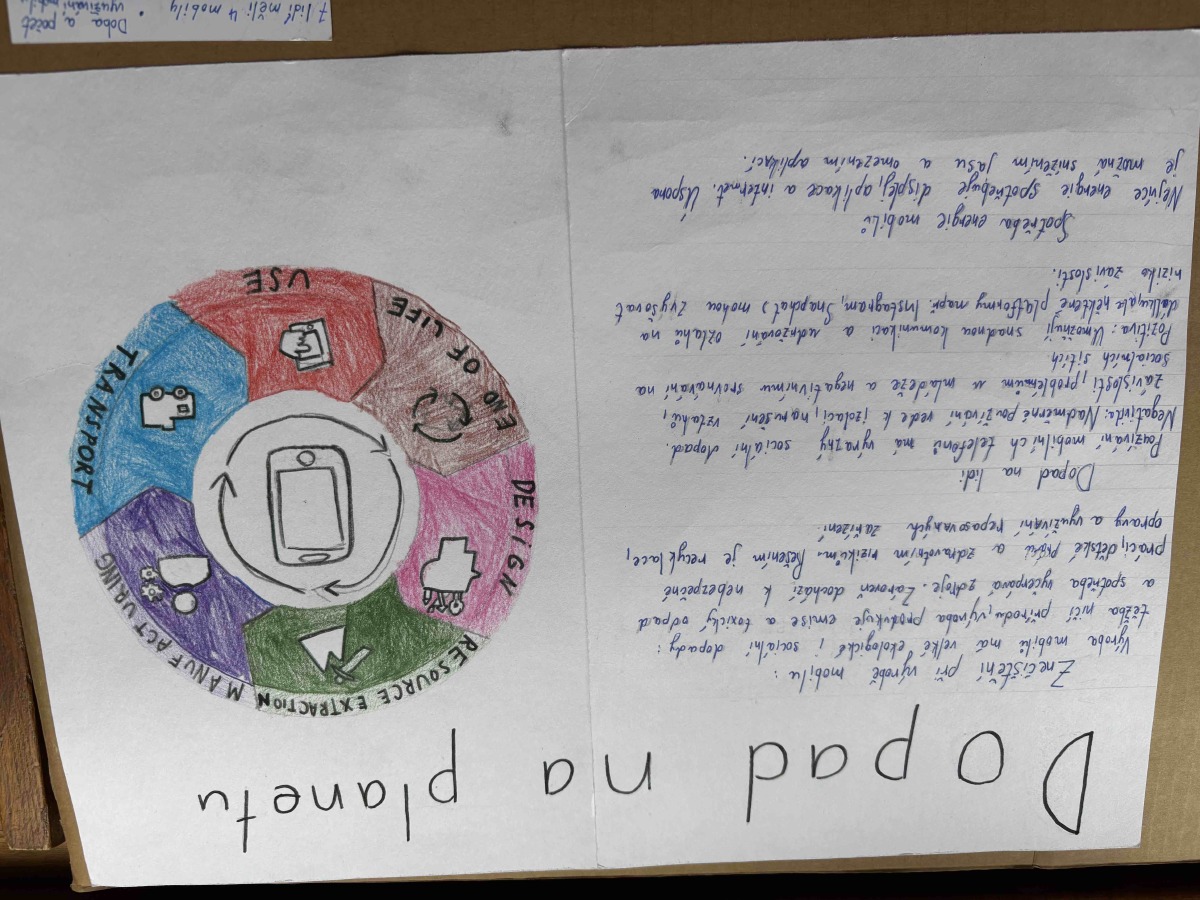 Dopad na planetu
Znečištění při výrobě mobilu:
Výroba mobilů má velké ekologické i sociální dopady:
těžba ničí přírodu, výroba produkuje emise a toxický odpad
a spotřeba vyčerpává zdroje. Zároveň dochází k nebezpečné
práci, dětské práci a zdravotním rizikům. Řešením je recyklace,
opravy a využívání repasovaných zařízení.
Dopad na lidi
Používání mobilních telefonů má výrazký sociální dopad.
Negativita: Nadměrné používání vede k izolaci, narušení vztahů,
závislosti, problémům u mládeže a negativnímu srovnávání na
sociálních sítích
Pozitiva: Umožňují snadnou komunikaci a udržování vztahů na
dálku, ale některé platformy např. Instagram, Snapchat) mohou zvyšovat
riziko závislosti.
Spotřeba energie mobilů
Nejvíce energie spotřebuje displej, aplikace a internet. Úspora
je možná snížením jasu a omezením aplikací.
USE
END OF LIFE
DESIGN
RESOURCE EXTRACTION
MANUFACTURING
TRANSPORT
Doba a počet
využívání
7 lidí měli 4 mobily